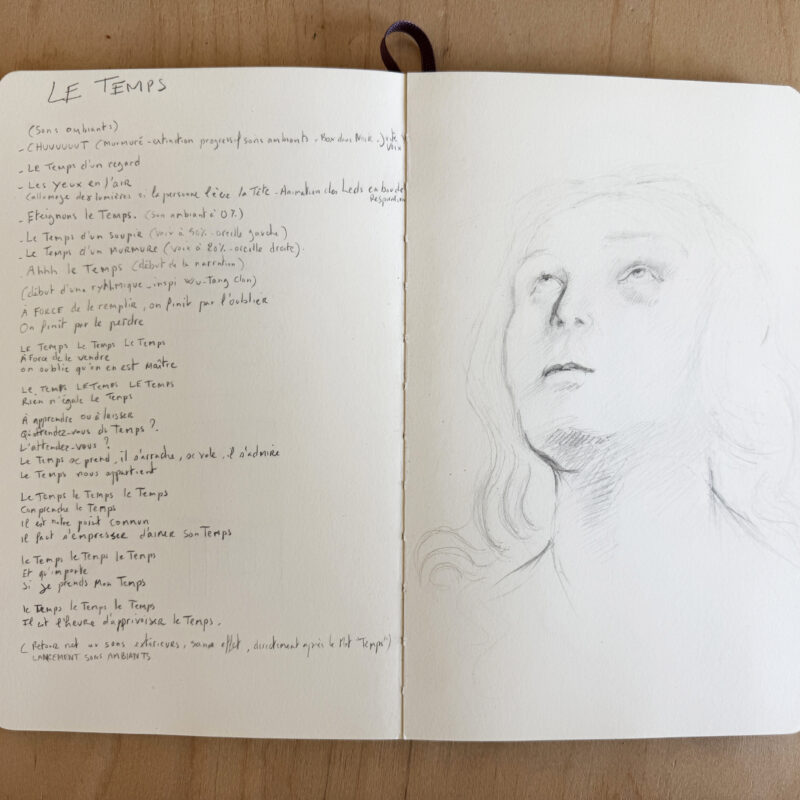 LE TEMPS
(Sons ambiants)
- CHUUUUUUT (Murmuré - extinction progressif sons ambiants - Juste
voix
- Le Temps d'un regard
- Les yeux en l'air
(allumage des lumières si la personne lève la Tête - Animation des Leds en boucle
Respiration
- Eteignons le Temps. (son ambiant à 0%)
- Le Temps d'un soupir (voix à 50% - oreille gauche)
- Le Temps d'un MURMURE (voix à 20% - oreille droite).
Ahhh le Temps (début de la narration)
(début d'une rythmique - inspi Wu-Tang Clan)
À FORCE de le remplir, on finit par l'oublier
On finit par le perdre
Le Temps Le Temps Le Temps
À force de le vendre
on oublie qu'on en est Maître
Le TEMPS LE TEMPS LE TEMPS
Rien n'égale Le Temps
À apprendre ou à laisser
Qu'attendez-vous du Temps ?
L'attendez-vous ?
Le Temps se prend, il s'arrache, se vole, il s'admire
Le Temps nous appartient
Le Temps le Temps le Temps
Comprendre le Temps
Il est notre point commun
Il faut s'empresser d'aimer son Temps
le Temps le Temps le Temps
Et qu'importe
Si je prends Mon Temps
le Temps le Temps le Temps
Il est l'heure d'apprivoiser le Temps.
( Retour net aux sons extérieurs, sans effet, directement après le Mot "Temps")
LANCEMENT SONS AMBIANTS